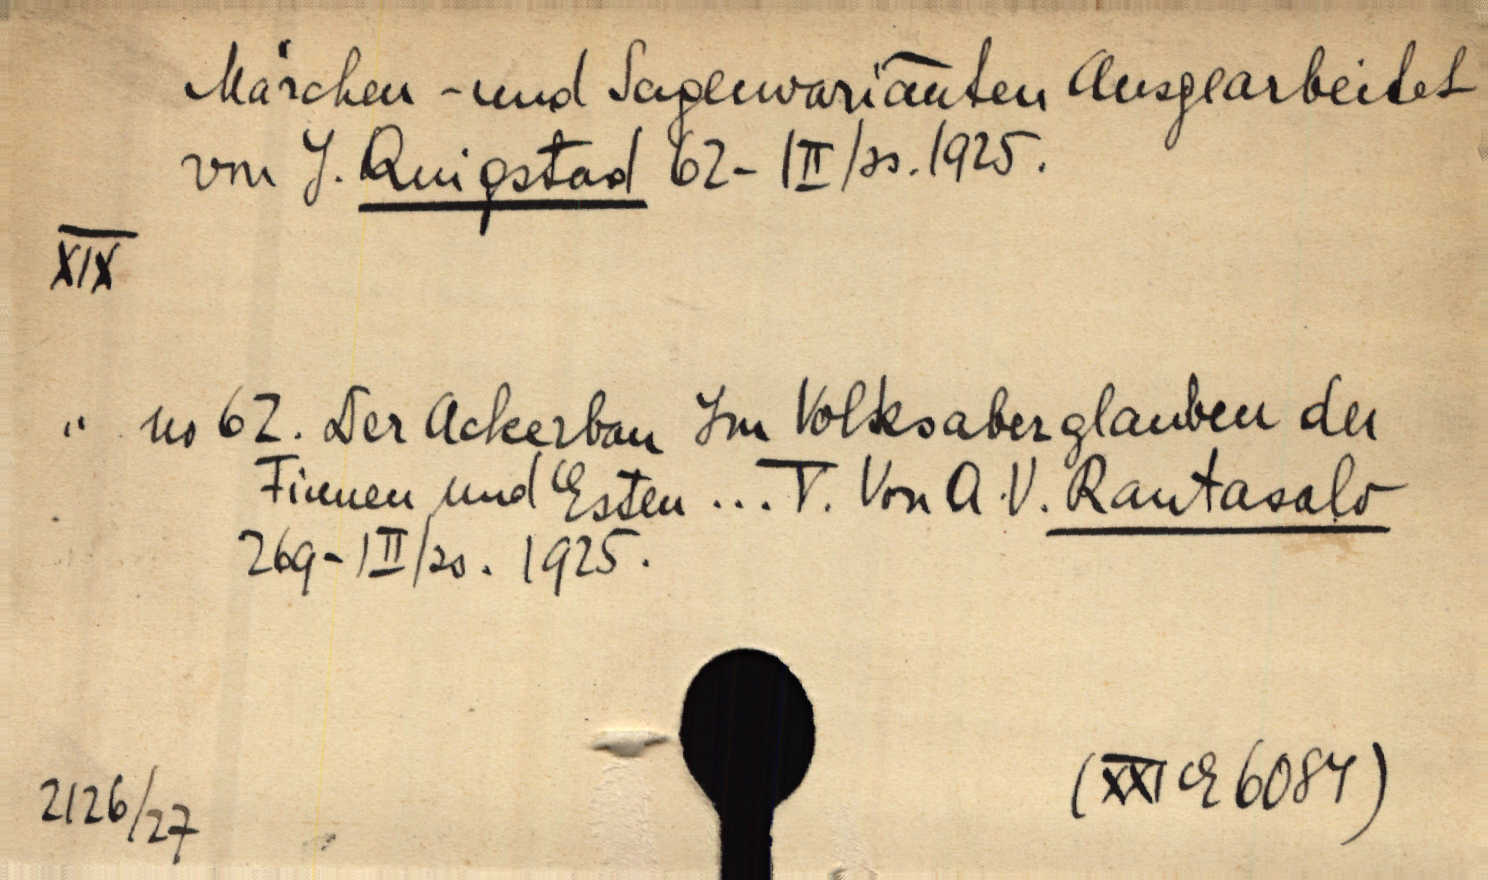 Märchen - und Sagenvarianten Ausgearbeitet
von J. Quigstad 62 - 1 II/ss. 1925.
XIX
" no 62. Der Ackerbau Im Volksaberglauben der
Finnen und Esten ... V. Von A. V. Rantasalo
269 - 1 II/ss. 1925.
2126/27
(XXI E 6084)